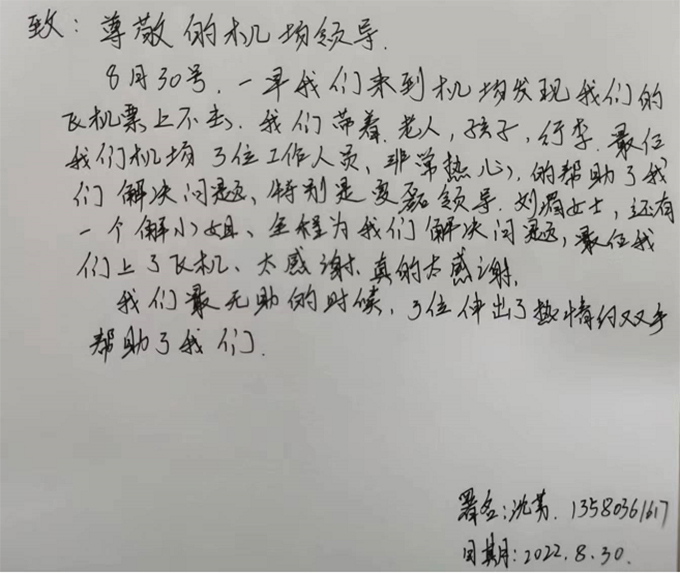 致：尊敬的机场领导.
8月30号.一早我们来到机场发现我们的
飞机票上不去.我们带着.老人,孩子,行李.最后
我们机场3位工作人员、非常热心,的帮助了我
们解决问题、特别是夏磊领导.刘涓女士,还有
一个解小姐、全程为我们解决问题,最后我
们上了飞机、太感谢.真的太感谢.
我们最无助的时候,3位伸出了热情的双手
帮助了我们.
署名:沈芳.13580361617
日期:2022.8.30.